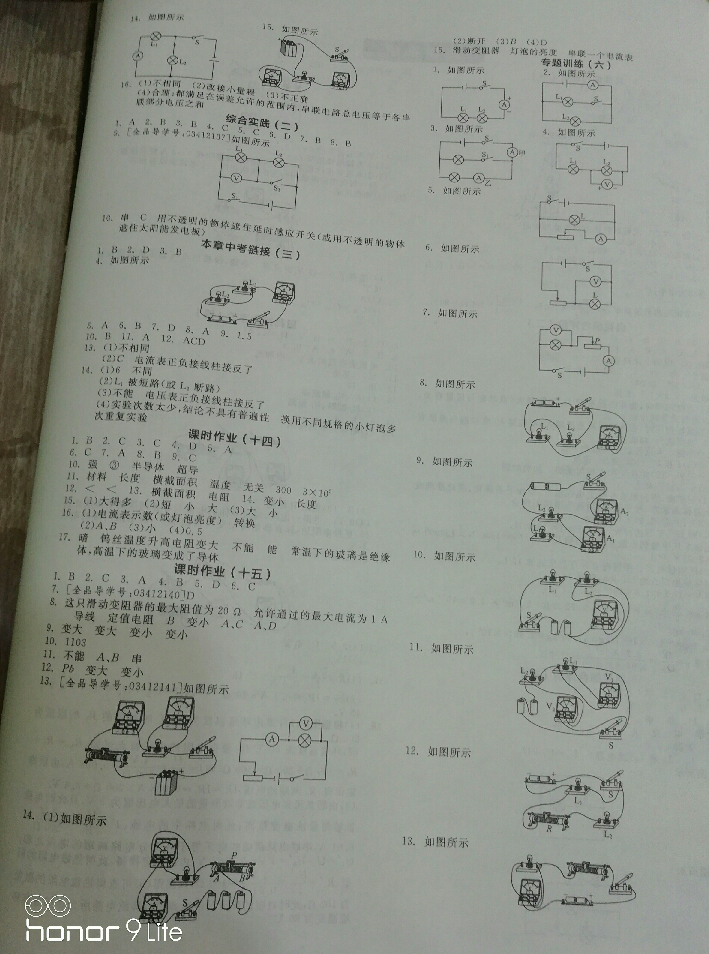 14. 如图所示
15. 如图所示
16. (1)不相同 (2)改接小量程 (3)不正确
(4)合理;都满足在误差允许的范围内,串联电路总电压等于各串
联部分电压之和
综合实践(二)
1. A 2. B 3. B 4. C 5. C 6. D 7. B 8. B
9. [全品导学号:03412137]如图所示
10. 串 C 用不透明的物体遮住延向感应开关(或用不透明的物体
遮住太阳能发电板)
本章中考链接(三)
1. B 2. D 3. B
4. 如图所示
5. A 6. B 7. D 8. A 9. 1.5
10. B 11. A 12. ACD
13. (1)不相同
(2)C 电流表正负接线柱接反了
14. (1)6 不同
(2)L₁ 被短路(或 L₂ 断路)
(3)不能 电压表正负接线柱接反了
(4)实验次数太少,结论不具有普遍性 换用不同规格的小灯泡多
次重复实验
课时作业(十四)
1. B 2. C 3. C 4. D 5. A
6. C 7. A 8. B 9. C
10. 强 ② 半导体 超导
11. 材料 长度 横截面积 温度 无关 300 3×10⁵
12. < < 13. 横截面积 电阻 14. 变小 长度
15. (1)大得多 (2)短 小 大 (3)大 小
16. (1)电流表示数(或灯泡亮度) 转换
(2)A、B (3)小 (4)0.5
17. 暗 钨丝温度升高电阻变大 不能 能 常温下的玻璃是绝缘
体,高温下的玻璃变成了导体
课时作业(十五)
1. B 2. C 3. A 4. B 5. D 6. C
7. [全品导学号:03412140]D
8. 这只滑动变阻器的最大阻值为 20 Ω 允许通过的最大电流为 1 A
导线 定值电阻 B 变小 A、C A、D
9. 变大 变大 变小 变小
10. 1103
11. 不能 A、B 串
12. Pb 变大 变小
13. [全品导学号:03412141]如图所示
14. (1)如图所示
(2)断开 (3)B (4)D
15. 滑动变阻器 灯泡的亮度 串联一个电流表
专题训练(六)
1. 如图所示
2. 如图所示
3. 如图所示
4. 如图所示
5. 如图所示
6. 如图所示
7. 如图所示
8. 如图所示
9. 如图所示
10. 如图所示
11. 如图所示
12. 如图所示
13. 如图所示
honor 9 Lite